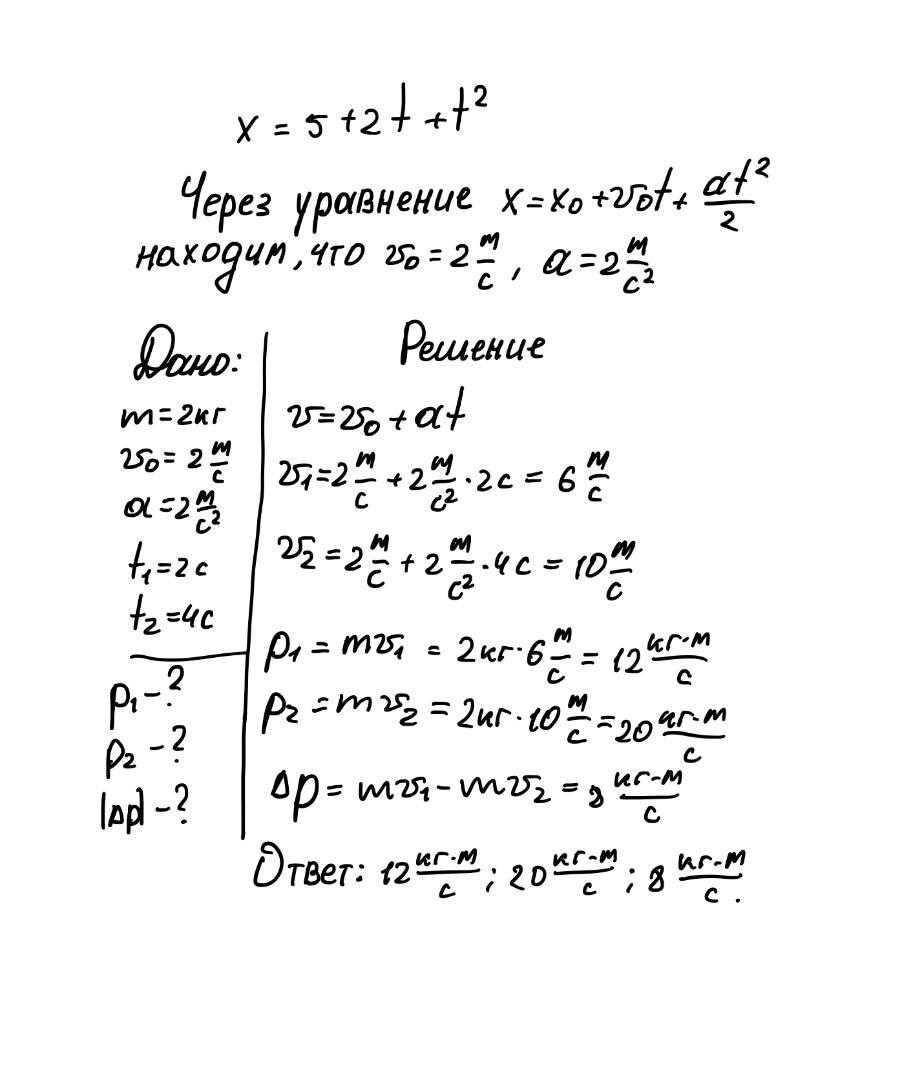 x = 5 + 2t + t²
Через уравнение x = x₀ + v₀t + at²/2
находим, что v₀ = 2 м/с, a = 2 м/с²
Дано:
m = 2 кг
v₀ = 2 м/с
a = 2 м/с²
t₁ = 2 с
t₂ = 4 с
p₁ – ?
p₂ – ?
|Δp| – ?
Решение
v = v₀ + at
v₁ = 2 м/с + 2 м/с² · 2 с = 6 м/с
v₂ = 2 м/с + 2 м/с² · 4 с = 10 м/с
p₁ = mv₁ = 2 кг · 6 м/с = 12 кг·м/с
p₂ = mv₂ = 2 кг · 10 м/с = 20 кг·м/с
Δp = mv₁ – mv₂ = 8 кг·м/с
Ответ: 12 кг·м/с ; 20 кг·м/с ; 8 кг·м/с .